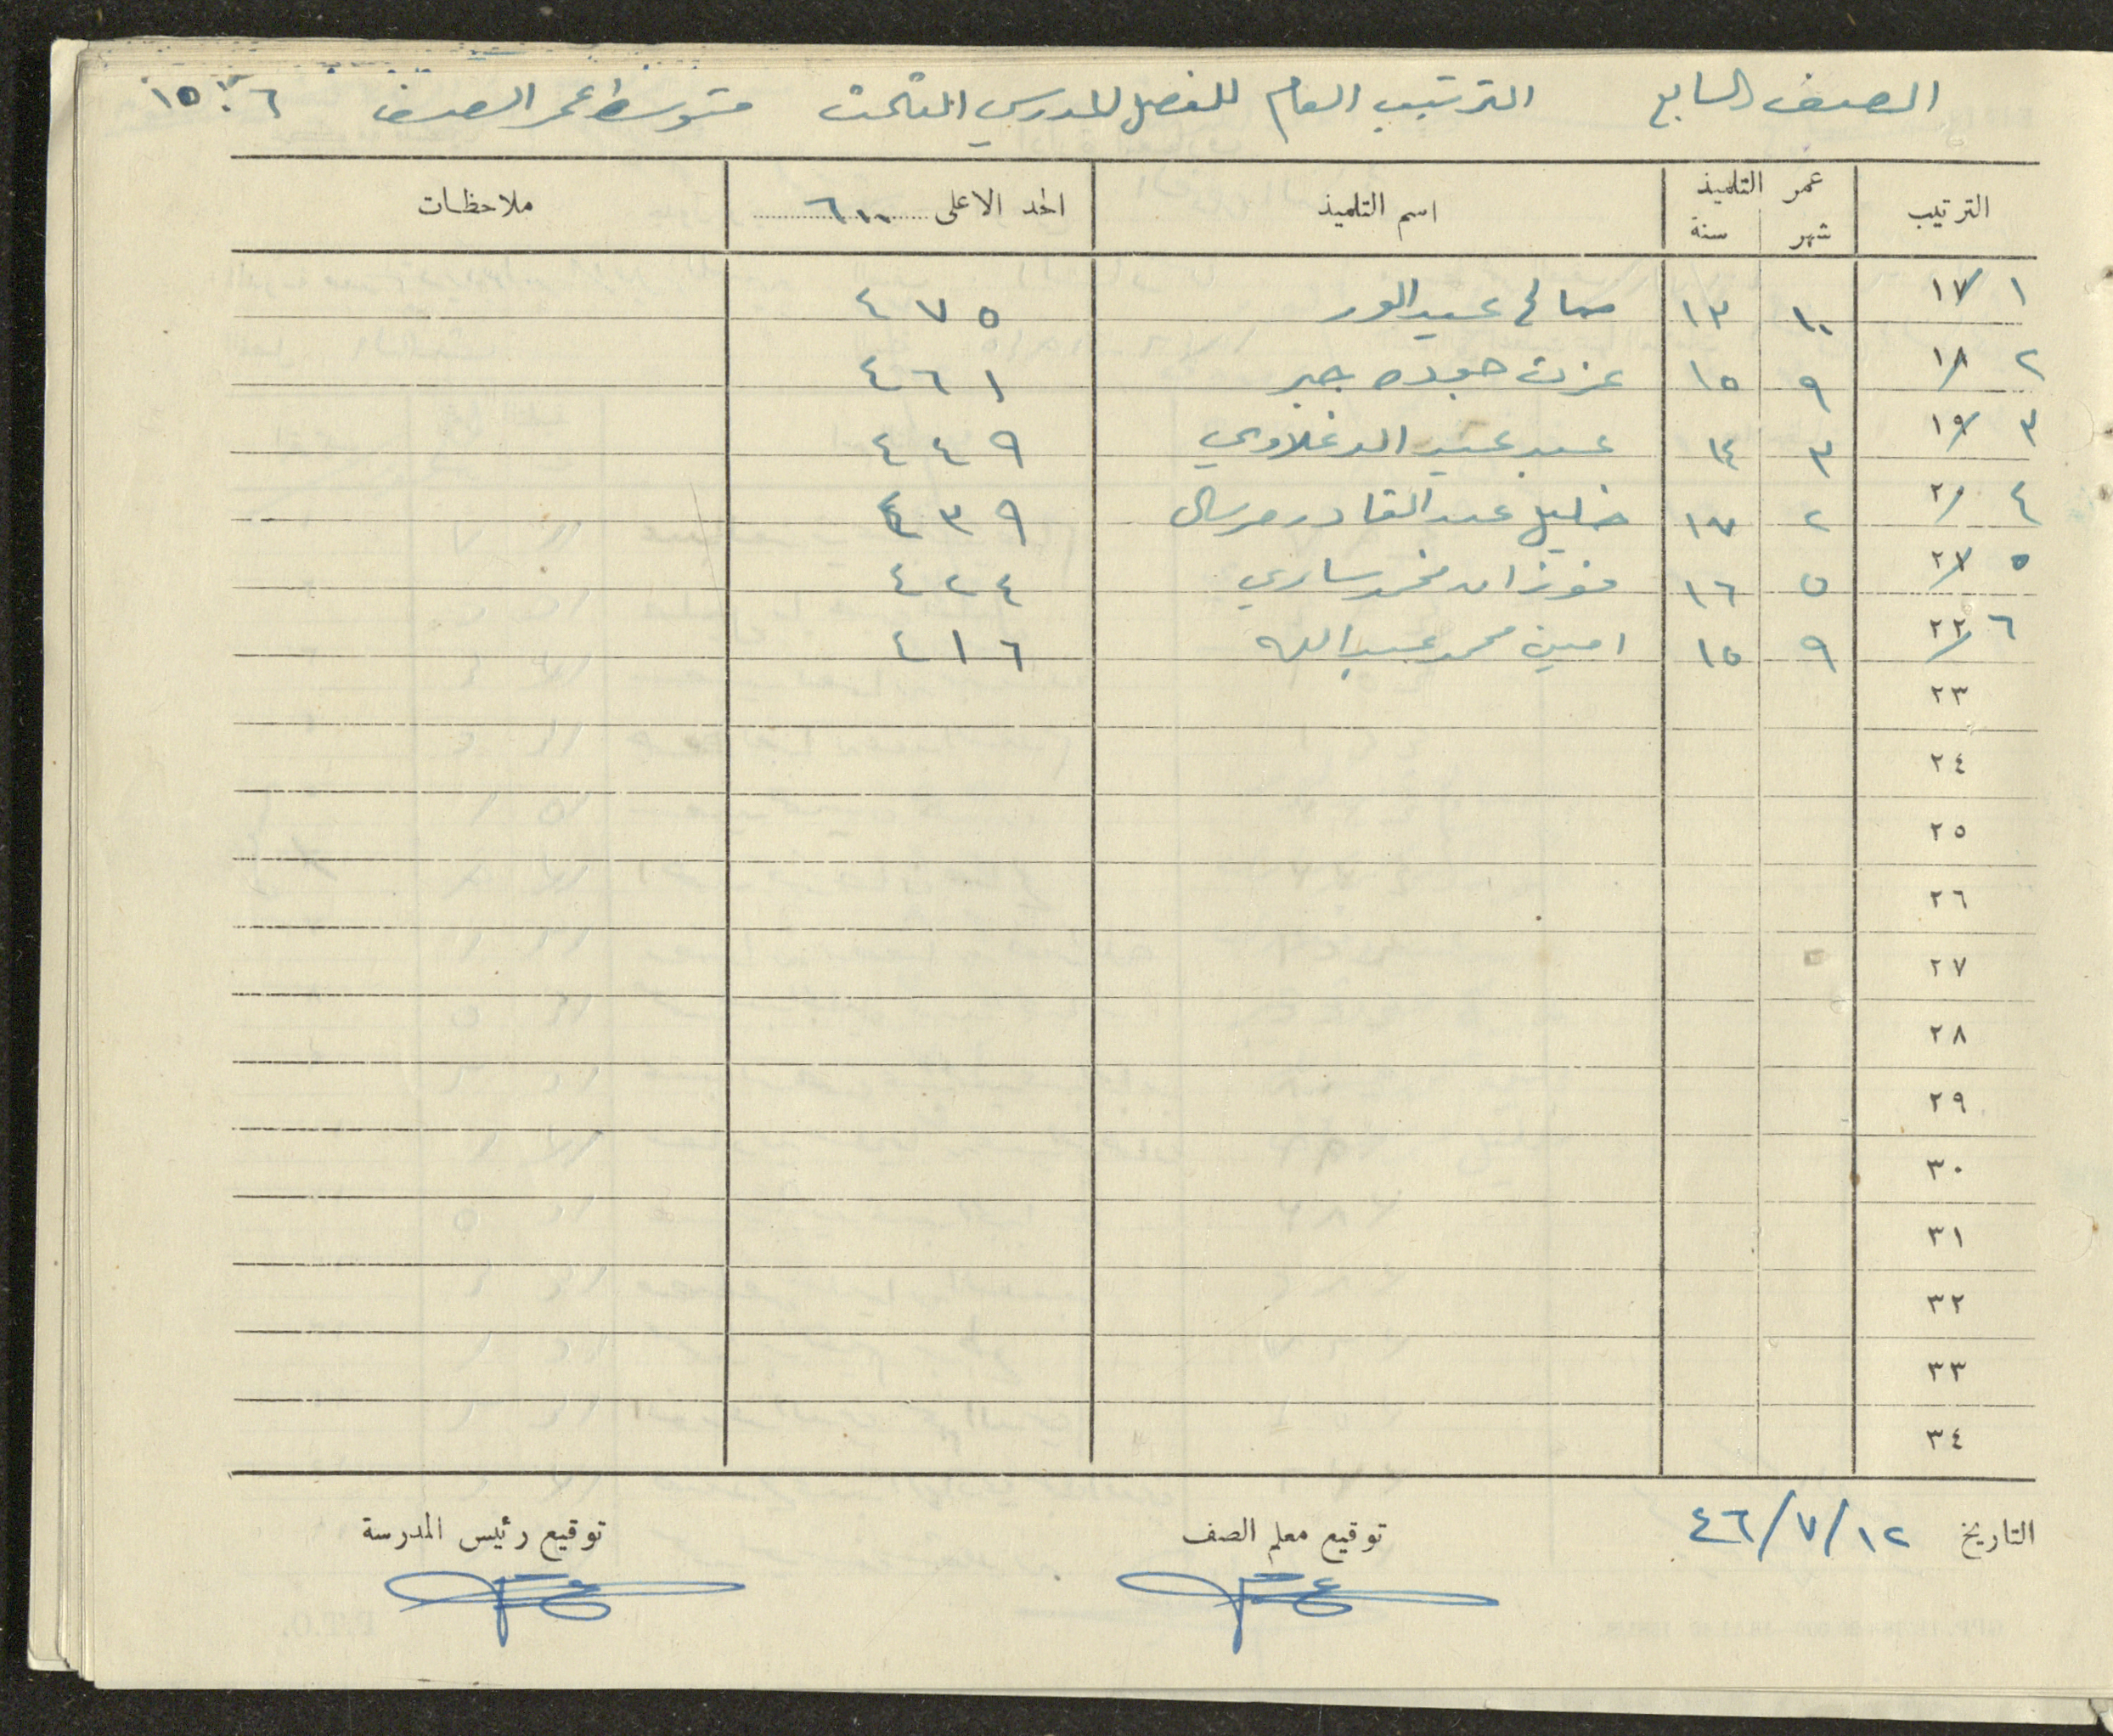 الصف السابع الترتيب العام للفصل المدرسي الثالث متوسط عمر الصف ٦
الترتيب عمر التلميذ اسم التلميذ الحد الاعلى ٦٠٠ ملاحظات
شهر سنة
١ ١٧ ١٠ ١٣ صالح عبد ٤٧٥
٢ ١٨ ٩ ١٥ عزت جوده جبر ٤٦١
٣ ١٩ ٣ ١٤ عبد عبد ٤٤٩
٤ ٢٠ ٢ ١٧ خليل عبد القادر مرسال ٤٣٩
٥ ٢١ ٥ ١٦ فوزان محمد ساري ٤٢٤
٦ ٢٢ ٩ ١٥ امين محمد عبدالله ٤١٦
٢٣
٢٤
٢٥
٢٦
٢٧
٢٨
٢٩
٣٠
٣١
٣٢
٣٣
٣٤
التاريخ ١٢/٧/٤٦ توقيع معلم الصف توقيع رئيس المدرسة